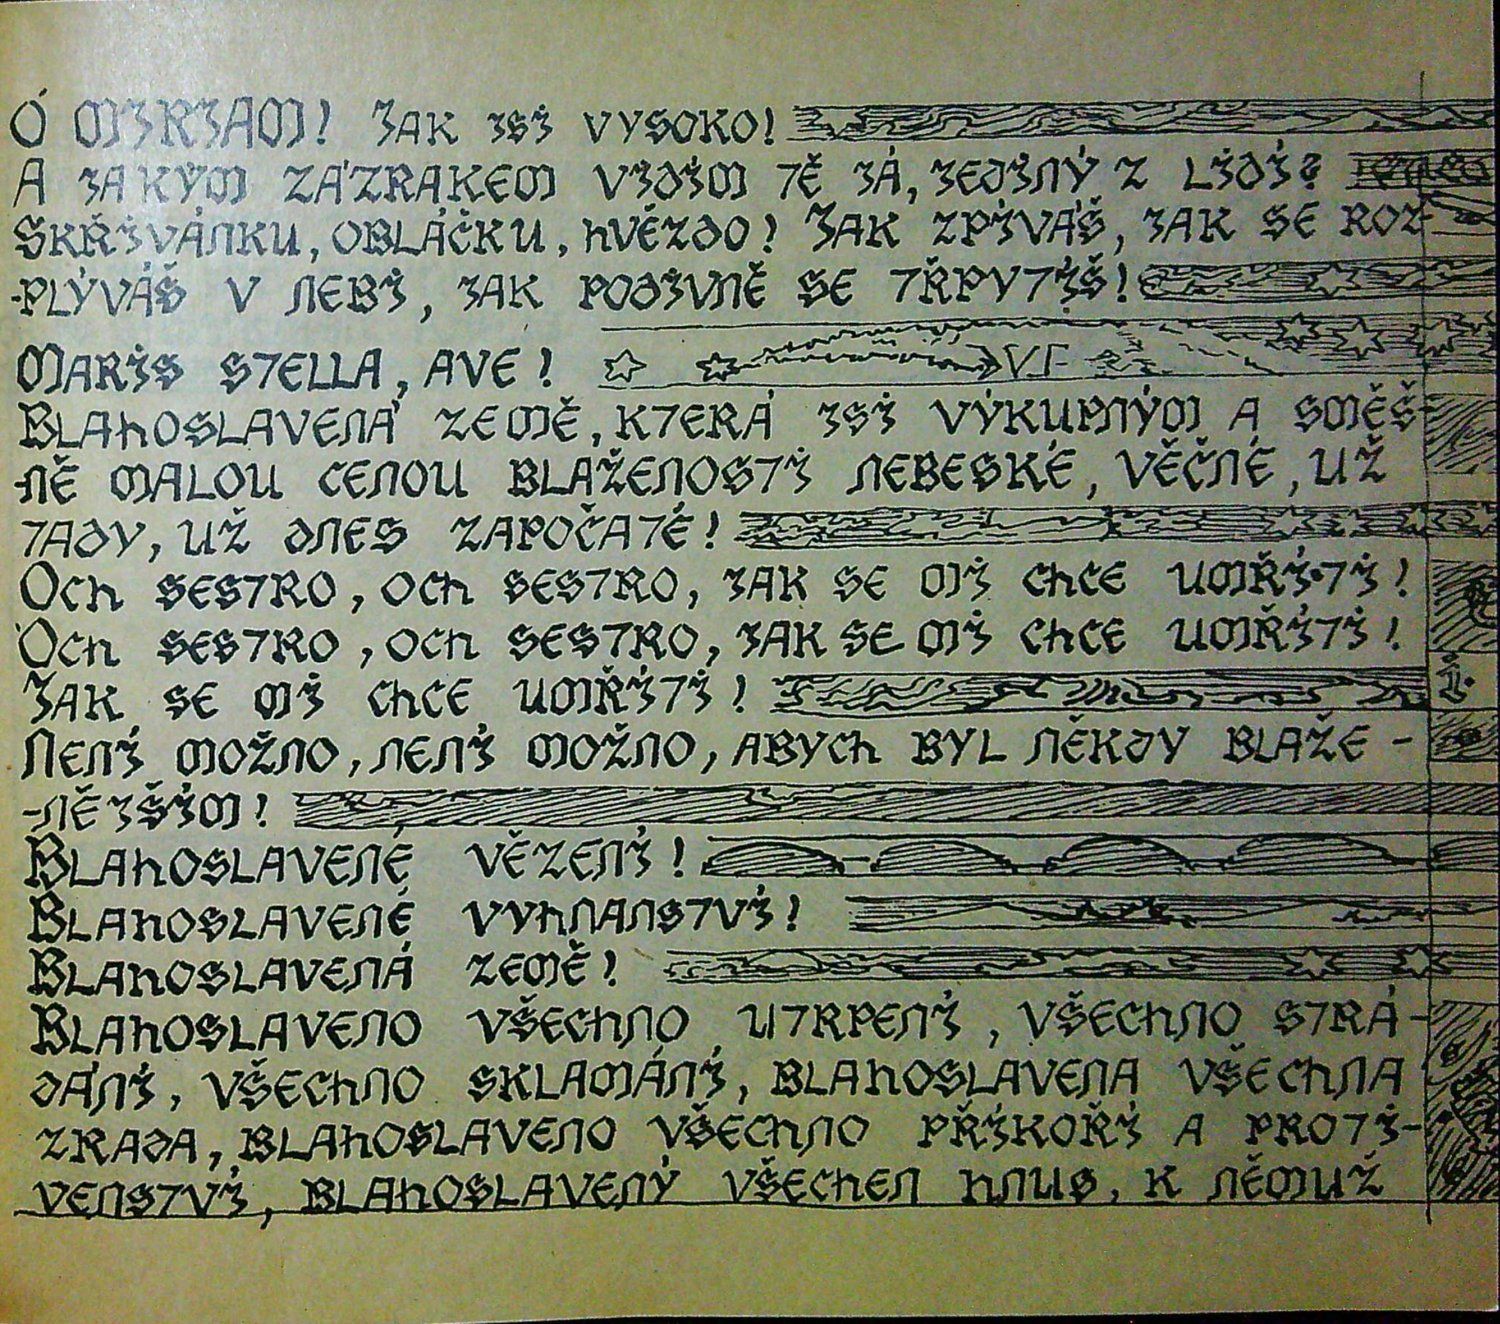 Ó MIRIAM! JAK JSI VYSOKO!
A JAKÝM ZÁZRAKEM VIDÍM TĚ JÁ, JEDINÝ Z LIDÍ?
SKŘIVÁNKU, OBLÁČKU, HVĚZDO! JAK ZPÍVÁŠ, JAK SE ROZ-
-PLÝVÁŠ V NEBI, JAK PODIVNĚ SE TŘPYTÍŠ!
MARIS STELLA, AVE! V.F.
BLAHOSLAVENÁ ZEMĚ, KTERÁ JSI VÝKUPNÝM A SMĚŠ-
-NĚ MALOU CENOU BLAŽENOSTI NEBESKÉ, VĚČNÉ, UŽ
TADY, UŽ DNES ZAPOČATÉ!
OCH SESTRO, OCH SESTRO, JAK SE MI CHCE UMŘÍTI!
OCH SESTRO, OCH SESTRO, JAK SE MI CHCE UMŘÍTI!
JAK SE MI CHCE UMŘÍTI!
NENÍ MOŽNO, NENÍ MOŽNO, ABYCH BYL NĚKDY BLAŽE-
-NĚJŠÍM!
BLAHOSLAVENÉ VĚZENÍ!
BLAHOSLAVENÉ VYHNANSTVÍ!
BLAHOSLAVENÁ ZEMĚ!
BLAHOSLAVENO VŠECHNO UTRPENÍ, VŠECHNO STRÁ-
DÁNÍ, VŠECHNO SKLAMÁNÍ, BLAHOSLAVENA VŠECHNA
ZRADA, BLAHOSLAVENO VŠECHNO PŘÍKOŘÍ A PROTI-
VENSTVÍ, BLAHOSLAVENÝ VŠECHEN HNUS, K NĚMUŽ